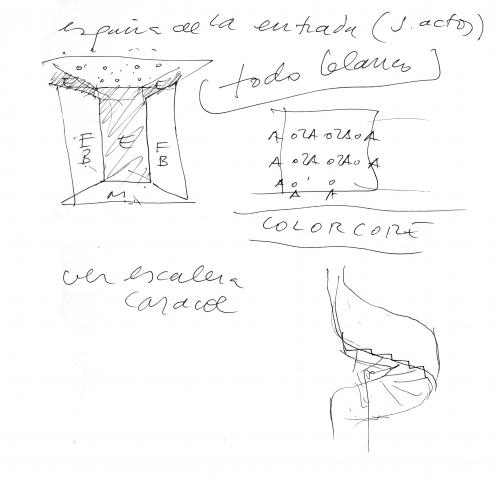 esquina de la entrada (s. actos)
(todo blanco)
E E
E E E
B B
M
A o A o A o A
A o A o A o A
A o o
A A
COLORCORE
ver escalera
caracol